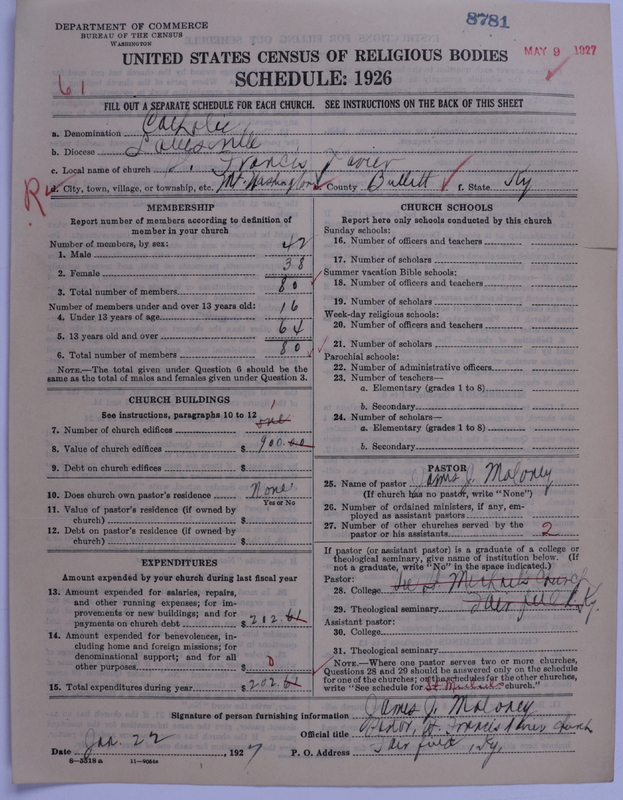 DEPARTMENT OF COMMERCE
BUREAU OF THE CENSUS
WASHINGTON
8781
MAY 9 1927
UNITED STATES CENSUS OF RELIGIOUS BODIES
SCHEDULE: 1926
61
FILL OUT A SEPARATE SCHEDULE FOR EACH CHURCH. SEE INSTRUCTIONS ON THE BACK OF THIS SHEET
a. Denomination Catholic
b. Diocese Louisville
c. Local name of church St. Francis Xavier
R
d. City, town, village, or township, etc. Mt Washington County Bullitt f. State Ky
MEMBERSHIP
Report number of members according to definition of
member in your church
Number of members, by sex:
1. Male 42
2. Female 38
3. Total number of members 80
Number of members under and over 13 years old:
4. Under 13 years of age 16
5. 13 years old and over 64
6. Total number of members 80
NOTE.—The total given under Question 6 should be
same as the total of males and females given under Question 3.
CHURCH BUILDINGS
See instructions, paragraphs 10 to 12
7. Number of church edifices one 1
8. Value of church edifices $ 900.00
9. Debt on church edifices $
10. Does church own pastor's residence None
Yes or No
11. Value of pastor's residence (if owned by
church) $
12. Debt on pastor's residence (if owned by
church) $
EXPENDITURES
Amount expended by your church during last fiscal year
13. Amount expended for salaries, repairs,
and other running expenses; for im-
provements or new buildings; and for
payments on church debt $ 202.61
14. Amount expended for benevolences, in-
cluding home and foreign missions; for
denominational support; and for all
other purposes $ 0
15. Total expenditures during year $ 202.61
CHURCH SCHOOLS
Report here only schools conducted by this church
Sunday schools:
16. Number of officers and teachers
17. Number of scholars
Summer vacation Bible schools:
18. Number of officers and teachers
19. Number of scholars
Week-day religious schools:
20. Number of officers and teachers
21. Number of scholars
Parochial schools:
22. Number of administrative officers
23. Number of teachers—
a. Elementary (grades 1 to 8)
b. Secondary
24. Number of scholars—
a. Elementary (grades 1 to 8)
b. Secondary
PASTOR
25. Name of pastor James J. Maloney
(If church has no pastor, write "None")
26. Number of ordained ministers, if any, em-
ployed as assistant pastors
27. Number of other churches served by the
pastor or his assistants 2
If pastor (or assistant pastor) is a graduate of a college or
theological seminary, give name of institution below. (If
not a graduate, write "No" in the space indicated.)
Pastor:
28. College St Michael's Church
29. Theological seminary Fairfield Ky.
Assistant pastor:
30. College
31. Theological seminary
NOTE.—Where one pastor serves two or more churches,
Questions 28 and 29 should be answered only on the schedule
for one of the churches; on the schedules for the other churches,
write "See schedule for St Michael's church."
Signature of person furnishing information James J. Maloney
Official title Pastor, St Francis Xavier Church
Date Jan. 22, 1927 P. O. Address Fairfield, Ky.
8—5518 a 11—9055a